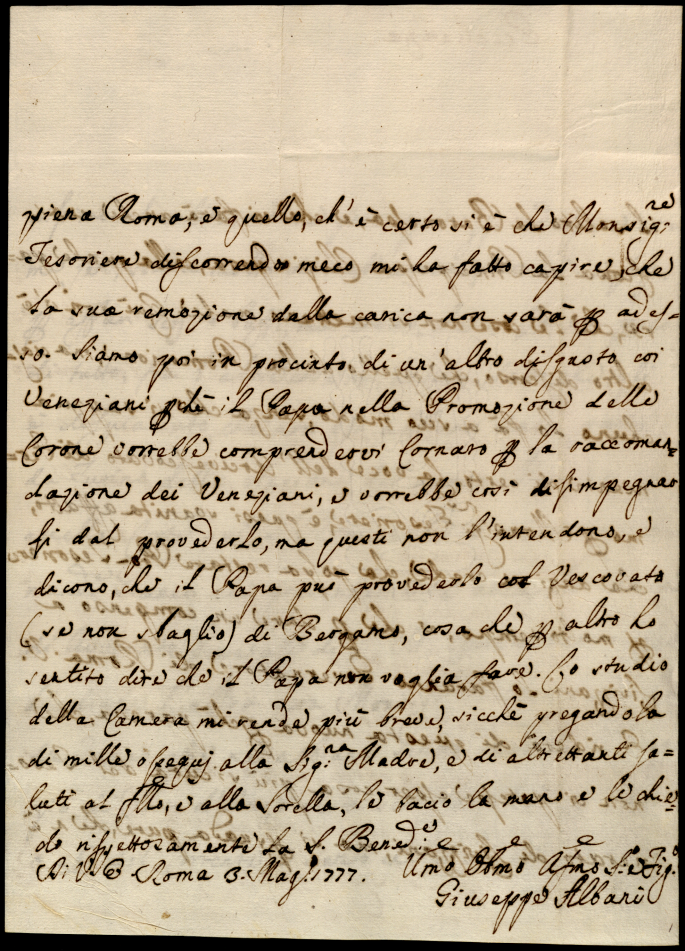 piena Roma, e quello, ch'è certo si è che Monsig.re
Tesoriere discorrendo meco mi ha fatto capire, che
la sua remozione dalla carica non sarà p ades=
so. Siamo poi in procinto di un'altro disgusto coi
Veneziani pchè il Papa nella Promozione delle
Corone vorrebbe comprendervi Cornaro p la raccoman=
dazione dei Veneziani, e vorrebbe così disimpegnar
si dal provederlo, ma questi non l'intendono, e
dicono, che il Papa può provederlo col Vescovato
(se non sbaglio) di Bergamo, cosa che p altro ho
sentito dire che il Papa non voglia fare. Lo studio
della Camera mi rende più breve, sicchè pregandola
di mille ossequj alla Sig.ra Madre, e di altrettanti sa=
luti al fllo, e alla Sorella, le bacio la mano e le chie=
do rispettosamente la S. Bened.e
Di V. E. Roma 3. Mag.o 1777. Umo Obmo Afmo S.e e Fig.o
Giuseppe Albani